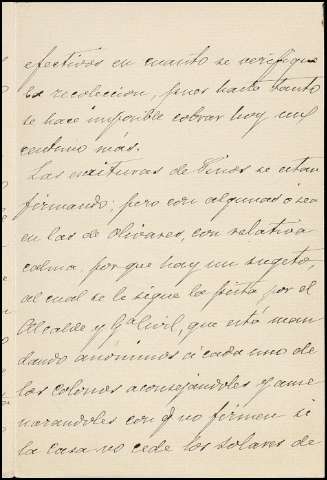 efectivos en cuanto se verifique
la recoleccion, pues hasta tanto
se hace imposible cobrar hoy un
centimo más.
Las escrituras de Tinos se estan
firmando; pero con algunas ó sea
en las de Olivares, con relativa
calma, por que hay un sugeto,
al cual se le sigue la pista por el
Alcalde y Gª Civil, que está man
dando anónimos á cada uno de
los colonos aconsejandoles y ame
nazandoles con q no firmen si
la Casa no cede los solares de